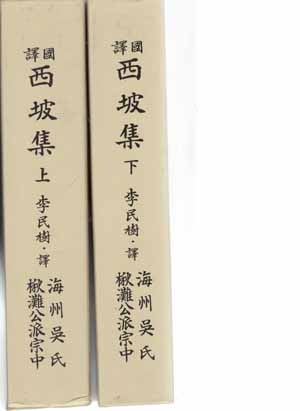 國譯
西坡集 上
李民樹·譯
海州吳氏
楸灘公派宗中
國譯
西坡集 下
李民樹·譯
海州吳氏
楸灘公派宗中